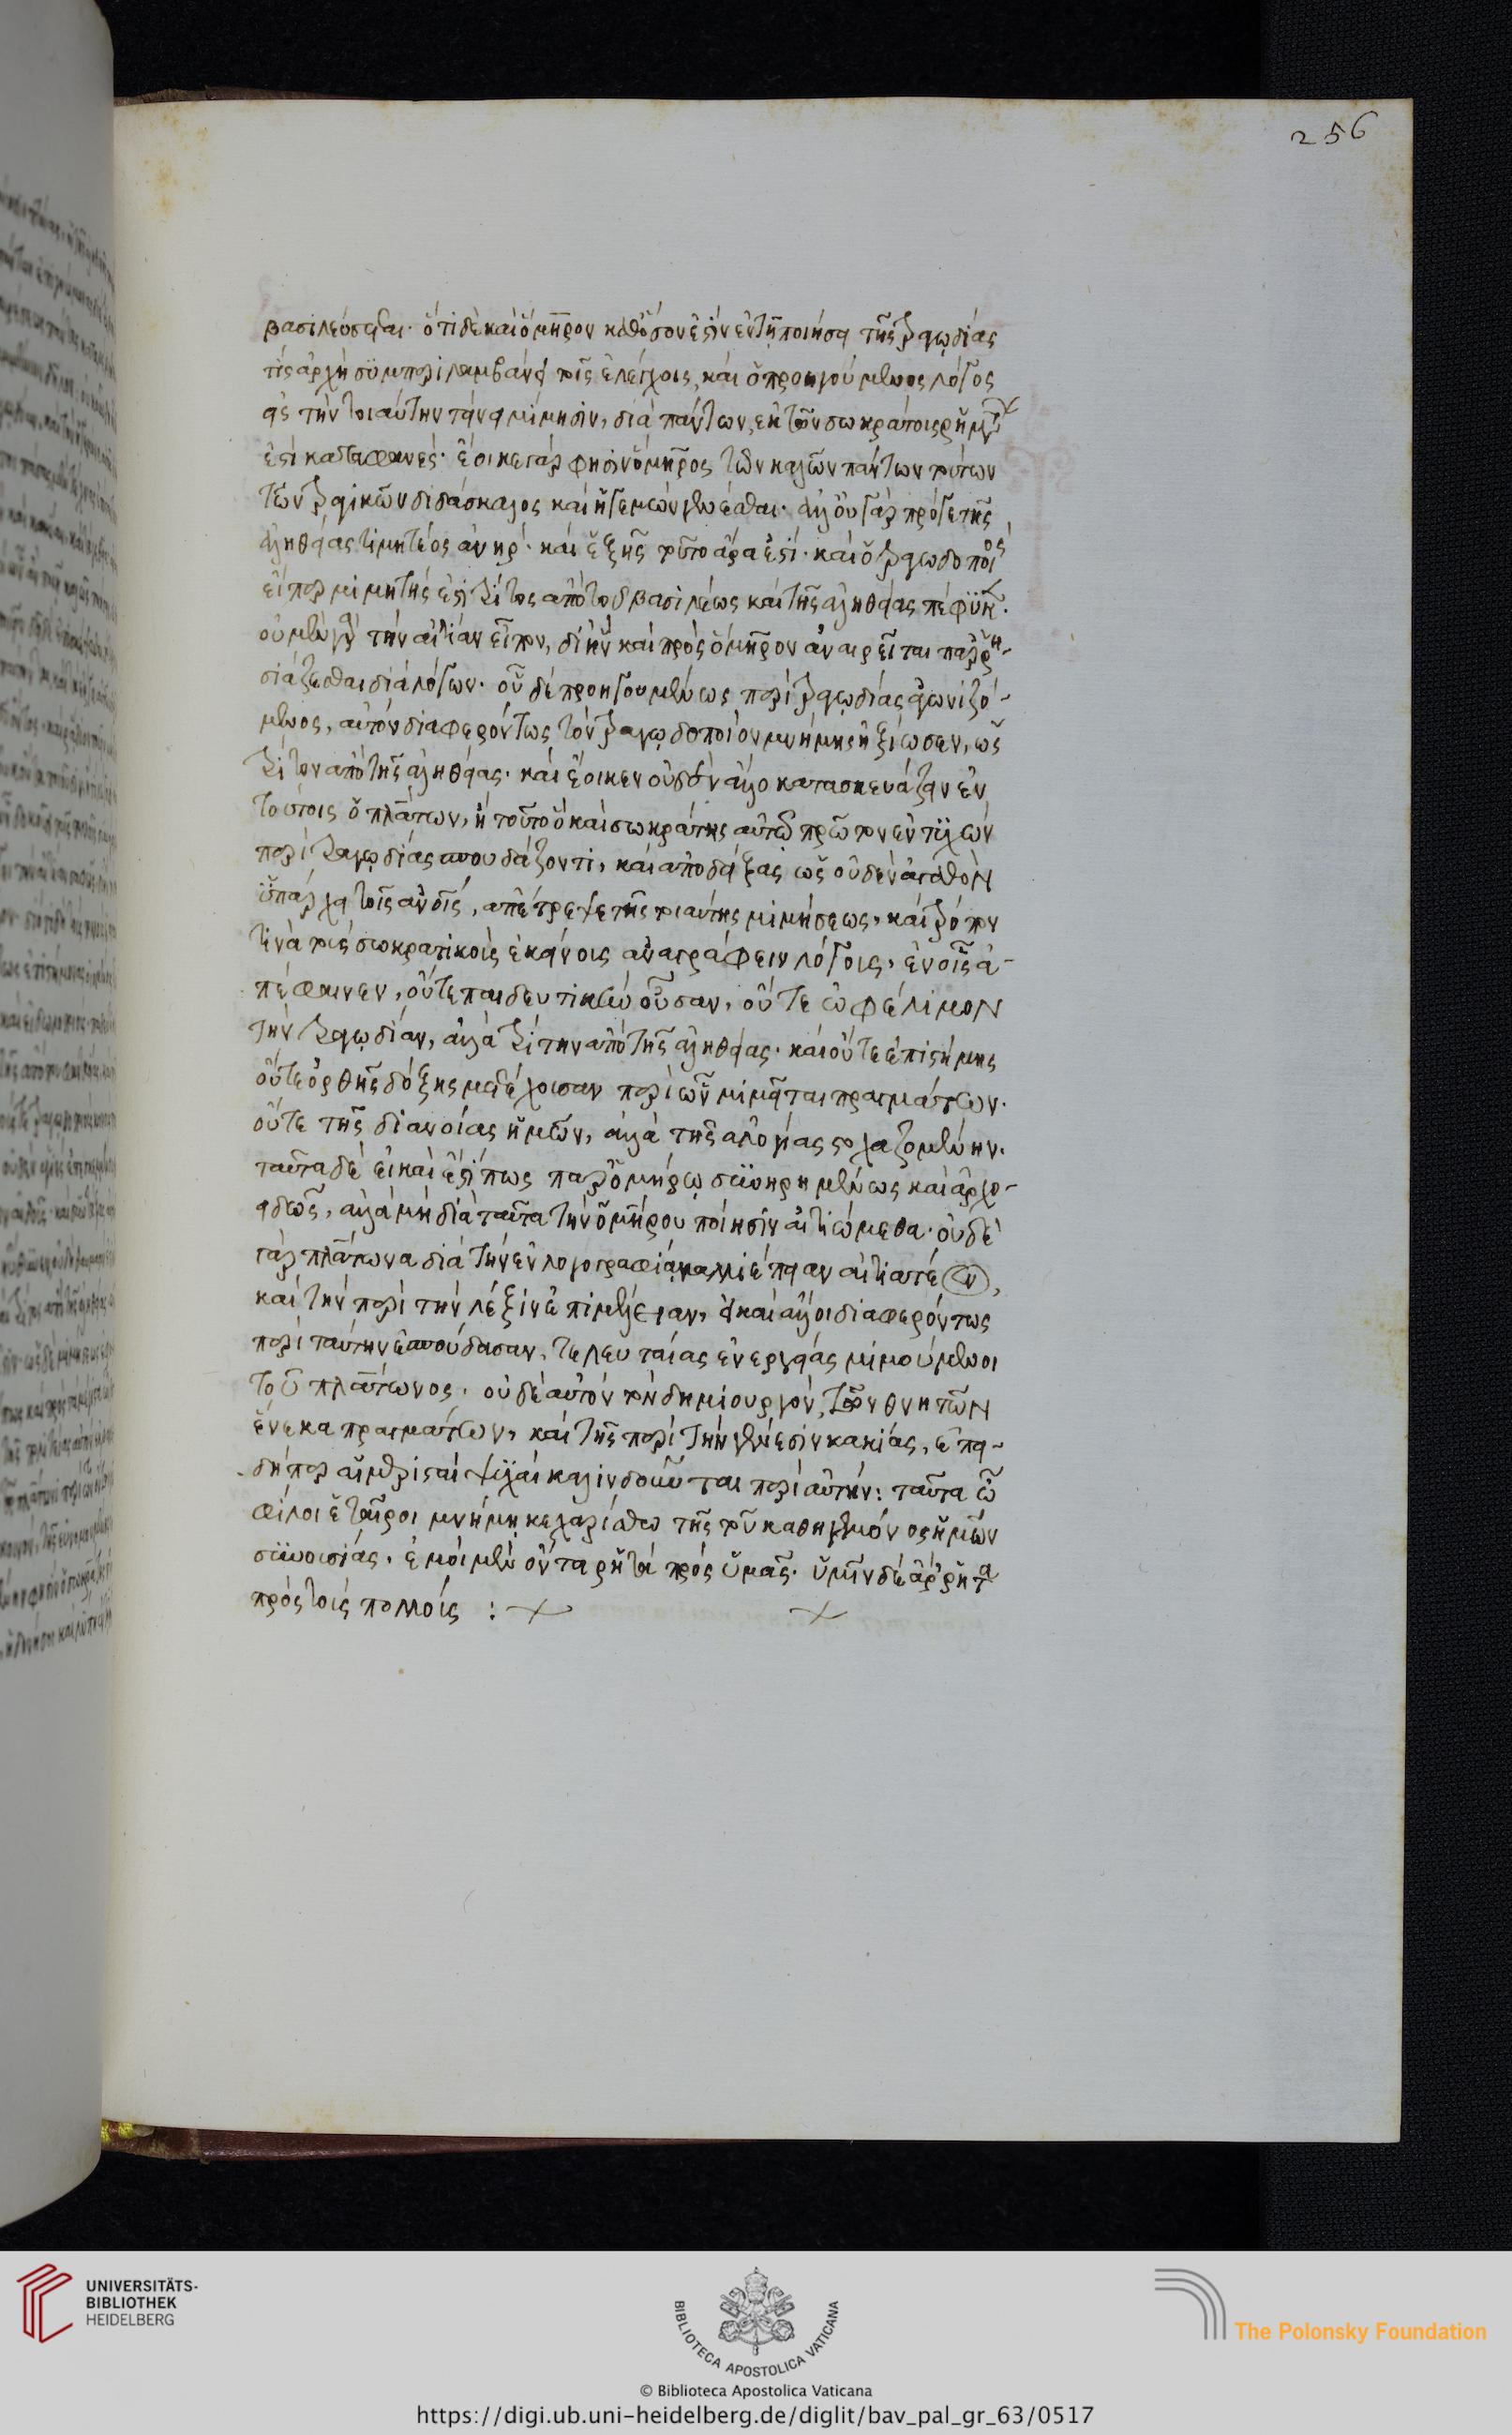 256
βασιλεύσεσθαι. ὅτι δὲ καὶ ὅμηρον καθ' ὅσον ἐστὶν ἐν τῇ ποιήσει τῆς τραγῳδίας
τίς ἀρχὴ συμπεριλαμβάνει τοῖς ἐλέγχοις, καὶ ὁ προηγούμενος λόγος
εἰς τὴν τοιαύτην τείνει μίμησιν, διὰ πάντων, ἐκ τῶν σωκράτους ῥημάτων
ἐστὶ καταφανές. ἔοικε γὰρ φησὶν ὅμηρος τῶν καλῶν πάντων τούτων
τῶν τραγικῶν διδάσκαλος καὶ ἡγεμὼν γενέσθαι. ἀλλ' οὐ γὰρ πρό γε τῆς
ἀληθείας τιμητέος ἀνήρ. καὶ ἑξῆς τοῦτο ἄρα ἐστί. καὶ ὁ τραγῳδοποιὸς
εἴπερ μιμητής ἐστι τρίτος ἀπὸ τοῦ βασιλέως καὶ τῆς ἀληθείας πέφυκε.
οὐ μὲν γὰρ τὴν αἰτίαν εἶπον, δι' ἣν καὶ πρὸς ὅμηρον ἀναιρεῖται παρρη-
σιάζεσθαι διὰ λόγων. οὐδὲ προηγουμένως περὶ τραγῳδίας ἀγωνιζό-
μενος, αὐτὸν διαφερόντως τὸν τραγῳδοποιὸν μνήμης ἠξίωσεν, ὡς
τρίτον ἀπὸ τῆς ἀληθείας. καὶ ἔοικεν οὐδὲν ἄλλο κατασκευάζειν ἐν
τούτοις ὁ πλάτων, ἢ τοῦτο ὃ καὶ σωκράτης αὐτῷ πρῶτον ἐντυχὼν
περὶ τραγῳδίας σπουδάζοντι, καὶ ἀποδείξας ὡς οὐδὲν ἀγαθὸν
ὑπάρχει τοῖς ἀνοις, ἀπέτρεψε τῆς τοιαύτης μιμήσεως, καὶ τρόπον
τινὰ τοὺς σωκρατικοὺς ἐκείνοις ἀναγράφειν λόγοις, ἐν οἷς ἀ-
πέφαινεν, οὔτε παιδευτικὴν οὖσαν, οὔτε ὠφέλιμον
τὴν τραγῳδίαν, ἀλλὰ τρίτην ἀπὸ τῆς ἀληθείας. καὶ οὔτε ἐπιστήμης
οὔτε ὀρθῆς δόξης μετέχουσαν περὶ ὧν μιμεῖται πραγμάτων.
οὔτε τῆς διανοίας ἡμῶν, ἀλλὰ τῆς ἀλογίας στοχαζομένην.
ταῦτα δὲ εἰ καὶ ἔστι πως παρ' ὁμήρῳ συνῃρημένως καὶ ἀρχο-
ειδῶς, ἀλλὰ μὴ διὰ ταῦτα τὴν ὁμήρου ποίησιν αἰτιώμεθα. οὐδὲ
γὰρ πλάτωνα διὰ τὴν ἐν λογογραφίᾳ καλλιέπειαν αἰτιατέον,
καὶ τὴν περὶ τὴν λέξιν ἐπιμέλειαν, εἰ καὶ ἄλλοι διαφερόντως
περὶ ταύτην ἐσπούδασαν, τελευταίας ἐνεργείας μιμούμενοι
τοῦ πλάτωνος. οὐδὲ αὐτὸν τὸν δημιουργὸν, τῶν θνητῶν
ἕνεκα πραγμάτων, καὶ τῆς περὶ τὴν γένεσιν κακίας, ἐπει-
δήπερ αἱ μερισταὶ ψυχαὶ καλινδοῦνται περὶ αὐτήν: ταῦτα ὦ
φίλοι ἑταῖροι μνήμῃ κεχαρίσθω τῆς τοῦ καθηγεμόνος ἡμῶν
συνουσίας. ἐμοὶ μὲν ὄντα ῥητὰ πρὸς ὑμᾶς. ὑμῖν δὲ ἄρρητα
πρὸς τοὺς πολλούς :
UNIVERSITÄTS-
BIBLIOTHEK
HEIDELBERG
BIBLIOTECA APOSTOLICA VATICANA
The Polonsky Foundation
© Biblioteca Apostolica Vaticana
https://digi.ub.uni-heidelberg.de/diglit/bav_pal_gr_63/0517